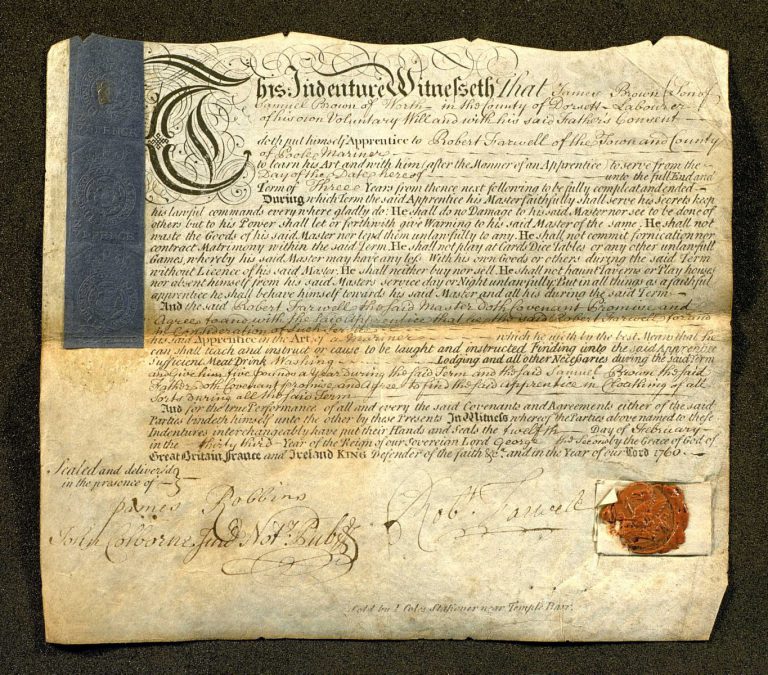 This Indenture Witnesseth That James Brown Son of
Samuel Brown of Worth in the County of Dorsett Labourer
of his own Voluntary Will and with his said Father's Consent
doth put himself Apprentice to Robert Farwell of the Town and County
of Poole Mariner
to learn his Art and with him (after the Manner of an Apprentice) to serve from the
Day of the Date hereof unto the full End and
Term of Three Years from thence next following to be fully compleat and ended
During which Term the said Apprentice his Master faithfully shall serve his secrets keep
his lawful commands every where gladly do: He shall do no Damage to his said Master nor see to be done of
others but to his Power shall let or forthwith give Warning to his said Master of the same. He shall not
waste the Goods of his said Master nor lend them unlawfully to any. He shall not commit fornication nor
contract Matrimony within the said Term. He shall not play at Cards Dice Tables or any other unlawfull
Games, whereby his said Master may have any loss. With his own Goods or others during the said Term
without Licence of his said Master. He shall neither buy nor sell. He shall not haunt Taverns or Play houses
nor absent himself from his said Masters service day or Night unlawfully: But in all things as a faithful
apprentice he shall behave himself towards his said Master and all his during the said Term
And the said Robert Farwell the said Master doth Covenant Promise and
Agree to and with the said Apprentice that he the said Robert Farwell for and
in Consideration of such
his said Apprentice in the Art of a Mariner which he useth by the best Means that he
can shall teach and instruct or cause to be taught and instructed Finding unto the said Apprentice
sufficient Meat Drink Washing Lodging and all other Necessaries during the said Term
and give him five pounds a Year during the said Term and the said Samuel Brown the said
Father doth Covenant promise and agree to find the said Apprentice in Cloathing of all
sorts during all the said Term
And for the true Performance of all and every the said Covenants and Agreements either of the said
Parties bindeth himself unto the other by these Presents In Witness whereof the Parties above named to these
Indentures interchangeably have put their Hands and Seals the twelfth Day of February
in the thirty third Year of the Reign of our Sovereign Lord George the Second by the Grace of God of
Great Britain France and Ireland KING Defender of the faith &c. and in the Year of our Lord 1760
Sealed and deliver'd
in the presence of
James Robbins
John Colborne Jun.r Not.y Pub
Rob.t Farwell
Sold by J Coles Stationer near Temple Barr.